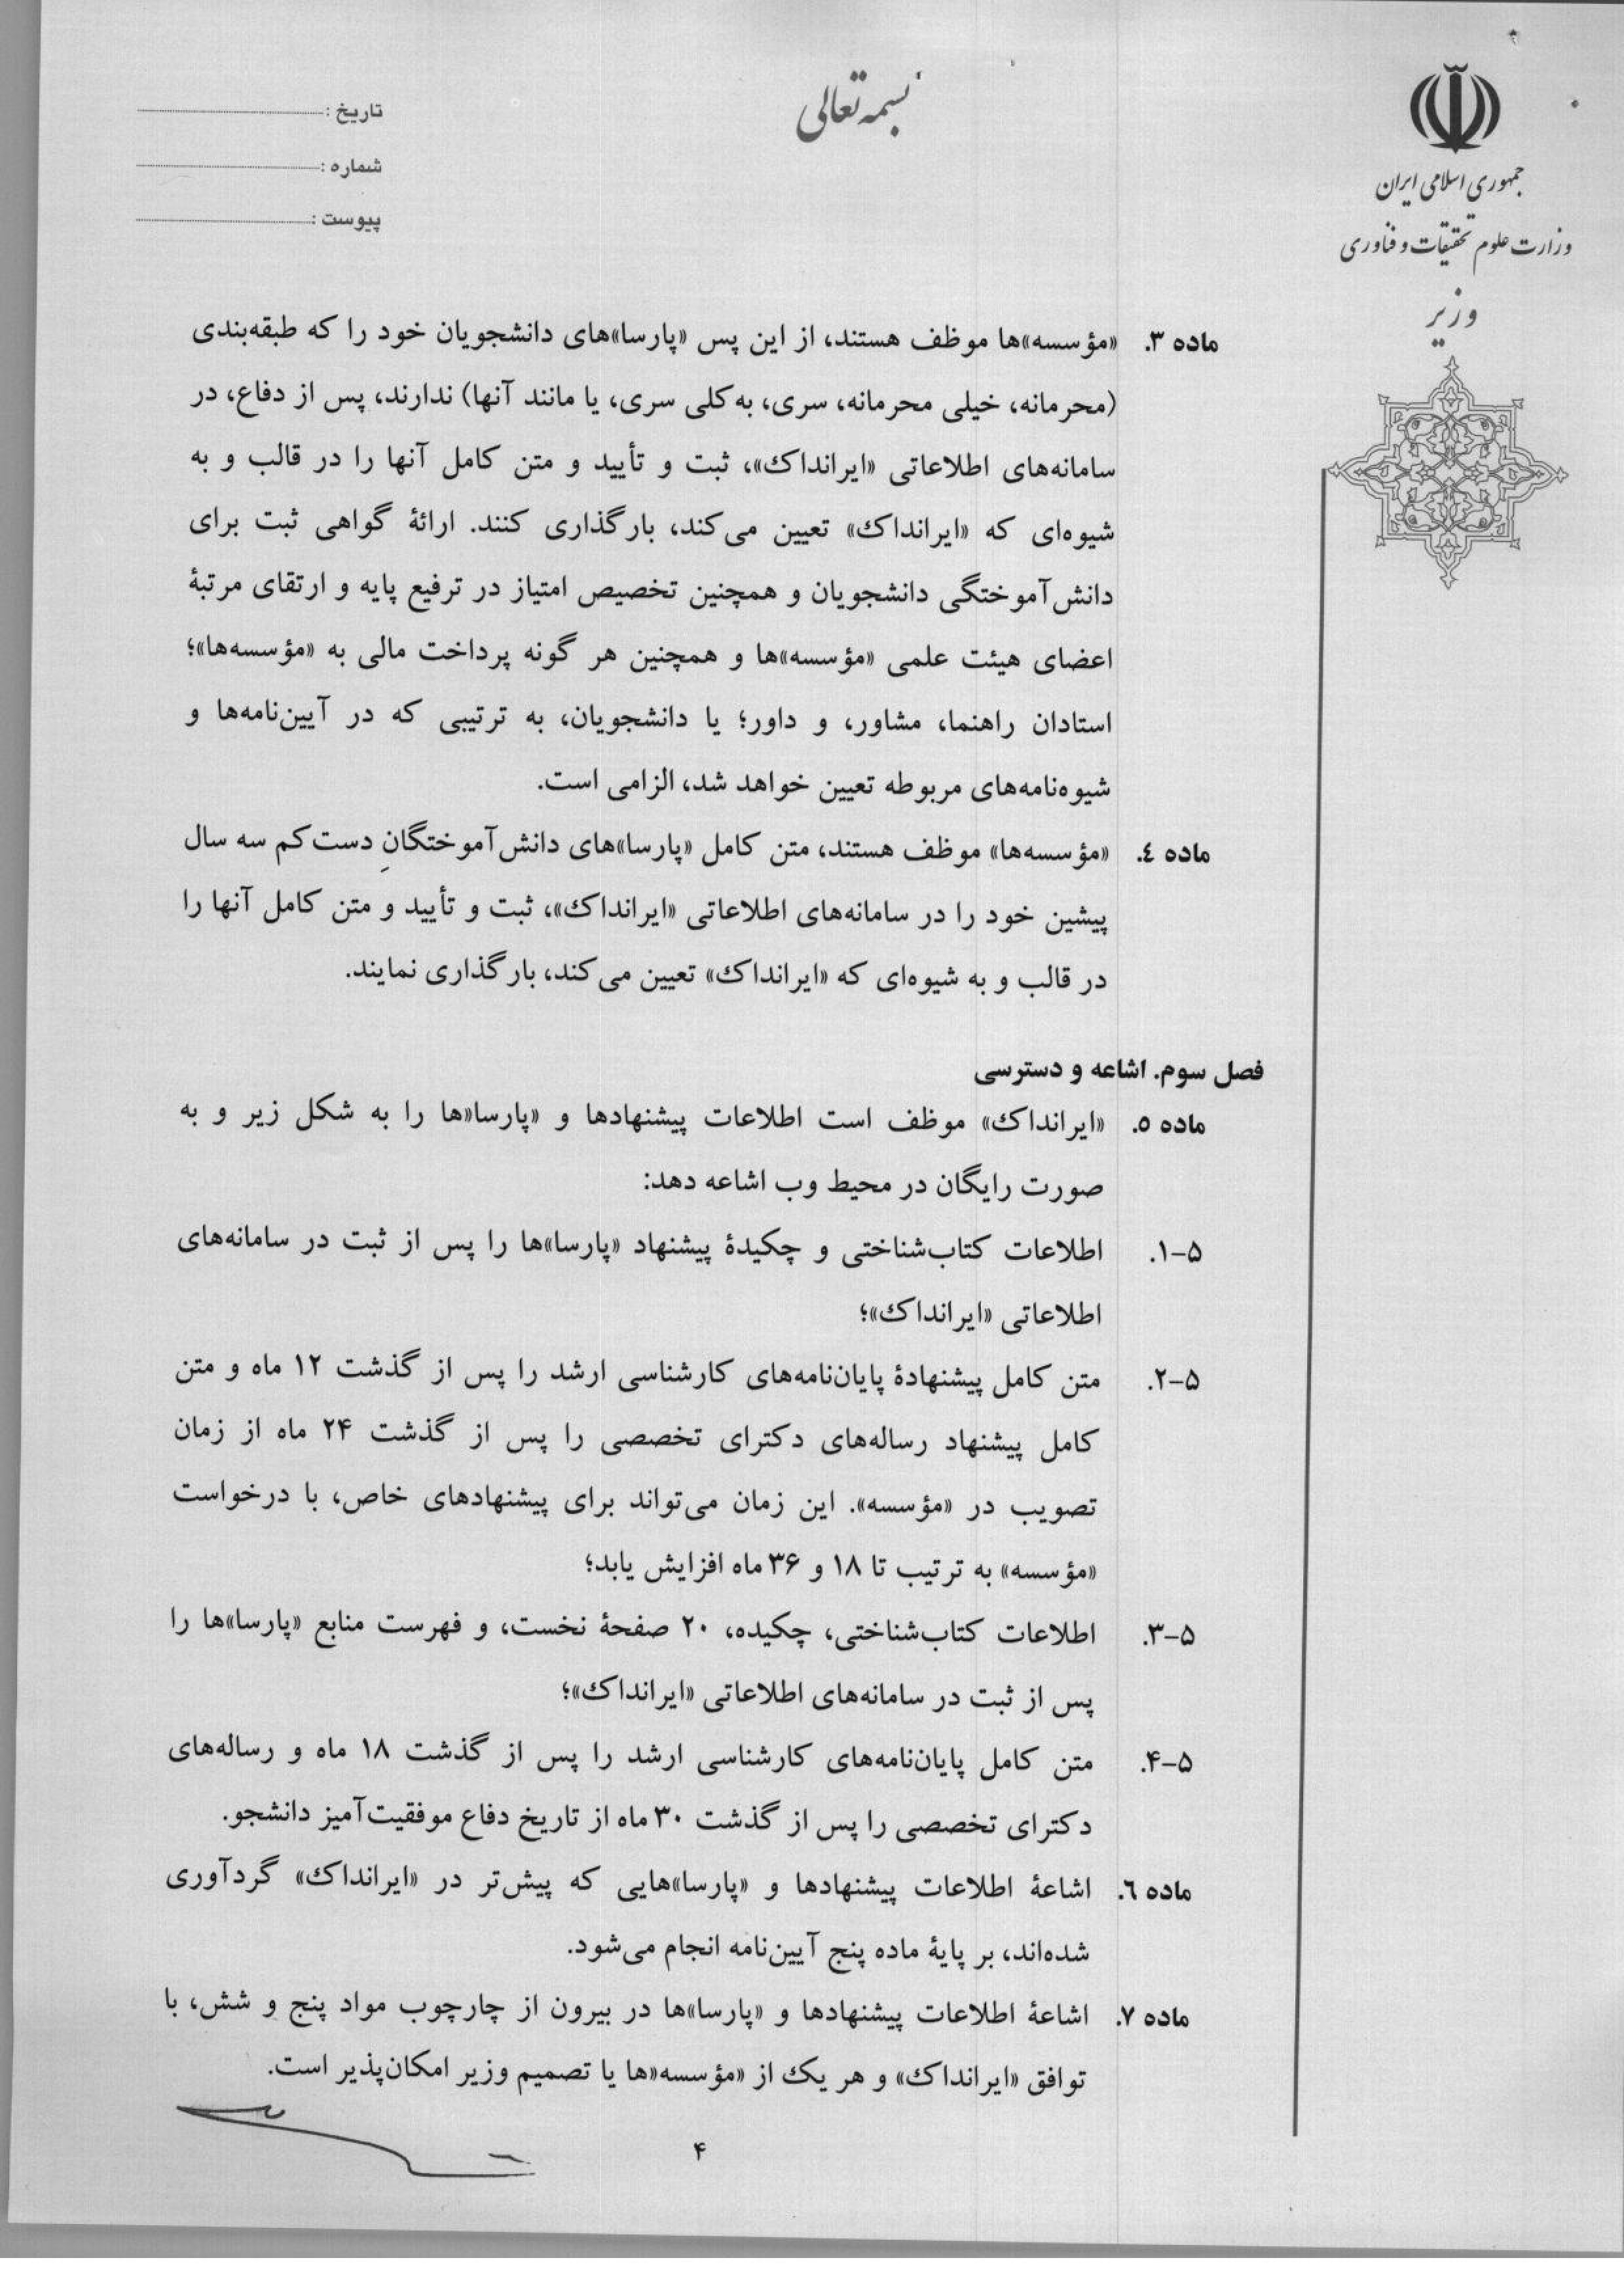 بسمه تعالی
جمهوری اسلامی ایران
وزارت علوم تحقیقات و فناوری
وزیر
تاریخ :
شماره :
پیوست :
ماده ۳. «مؤسسه»ها موظف هستند، از این پس «پارسا»های دانشجویان خود را که طبقه‌بندی
(محرمانه، خیلی محرمانه، سری، به کلی سری، یا مانند آنها) ندارند، پس از دفاع، در
سامانه‌های اطلاعاتی «ایرانداک»، ثبت و تأیید و متن کامل آنها را در قالب و به
شیوه‌ای که «ایرانداک» تعیین می‌کند، بارگذاری کنند. ارائهٔ گواهی ثبت برای
دانش‌آموختگی دانشجویان و همچنین تخصیص امتیاز در ترفیع پایه و ارتقای مرتبهٔ
اعضای هیئت علمی «مؤسسه»ها و همچنین هر گونه پرداخت مالی به «مؤسسه‌ها»؛
استادان راهنما، مشاور، و داور؛ یا دانشجویان، به ترتیبی که در آیین‌نامه‌ها و
شیوه‌نامه‌های مربوطه تعیین خواهد شد، الزامی است.
ماده ٤. «مؤسسه‌ها» موظف هستند، متن کامل «پارسا»های دانش‌آموختگانِ دست‌کم سه سال
پیشین خود را در سامانه‌های اطلاعاتی «ایرانداک»، ثبت و تأیید و متن کامل آنها را
در قالب و به شیوه‌ای که «ایرانداک» تعیین می‌کند، بارگذاری نمایند.
فصل سوم. اشاعه و دسترسی
ماده ٥. «ایرانداک» موظف است اطلاعات پیشنهادها و «پارسا«ها را به شکل زیر و به
صورت رایگان در محیط وب اشاعه دهد:
۵-۱. اطلاعات کتاب‌شناختی و چکیدهٔ پیشنهاد «پارسا»ها را پس از ثبت در سامانه‌های
اطلاعاتی «ایرانداک»؛
۵-۲. متن کامل پیشنهادهٔ پایان‌نامه‌های کارشناسی ارشد را پس از گذشت ۱۲ ماه و متن
کامل پیشنهاد رساله‌های دکترای تخصصی را پس از گذشت ۲۴ ماه از زمان
تصویب در «مؤسسه». این زمان می‌تواند برای پیشنهادهای خاص، با درخواست
«مؤسسه» به ترتیب تا ۱۸ و ۳۶ ماه افزایش یابد؛
۵-۳. اطلاعات کتاب‌شناختی، چکیده، ۲۰ صفحهٔ نخست، و فهرست منابع «پارسا»ها را
پس از ثبت در سامانه‌های اطلاعاتی «ایرانداک»؛
۵-۴. متن کامل پایان‌نامه‌های کارشناسی ارشد را پس از گذشت ۱۸ ماه و رساله‌های
دکترای تخصصی را پس از گذشت ۳۰ ماه از تاریخ دفاع موفقیت‌آمیز دانشجو.
ماده ٦. اشاعهٔ اطلاعات پیشنهادها و «پارسا»هایی که پیش‌تر در «ایرانداک» گردآوری
شده‌اند، بر پایهٔ ماده پنج آیین‌نامه انجام می‌شود.
ماده ۷. اشاعهٔ اطلاعات پیشنهادها و «پارسا»ها در بیرون از چارچوب مواد پنج و شش، با
توافق «ایرانداک» و هر یک از «مؤسسه«ها یا تصمیم وزیر امکان‌پذیر است.
۴